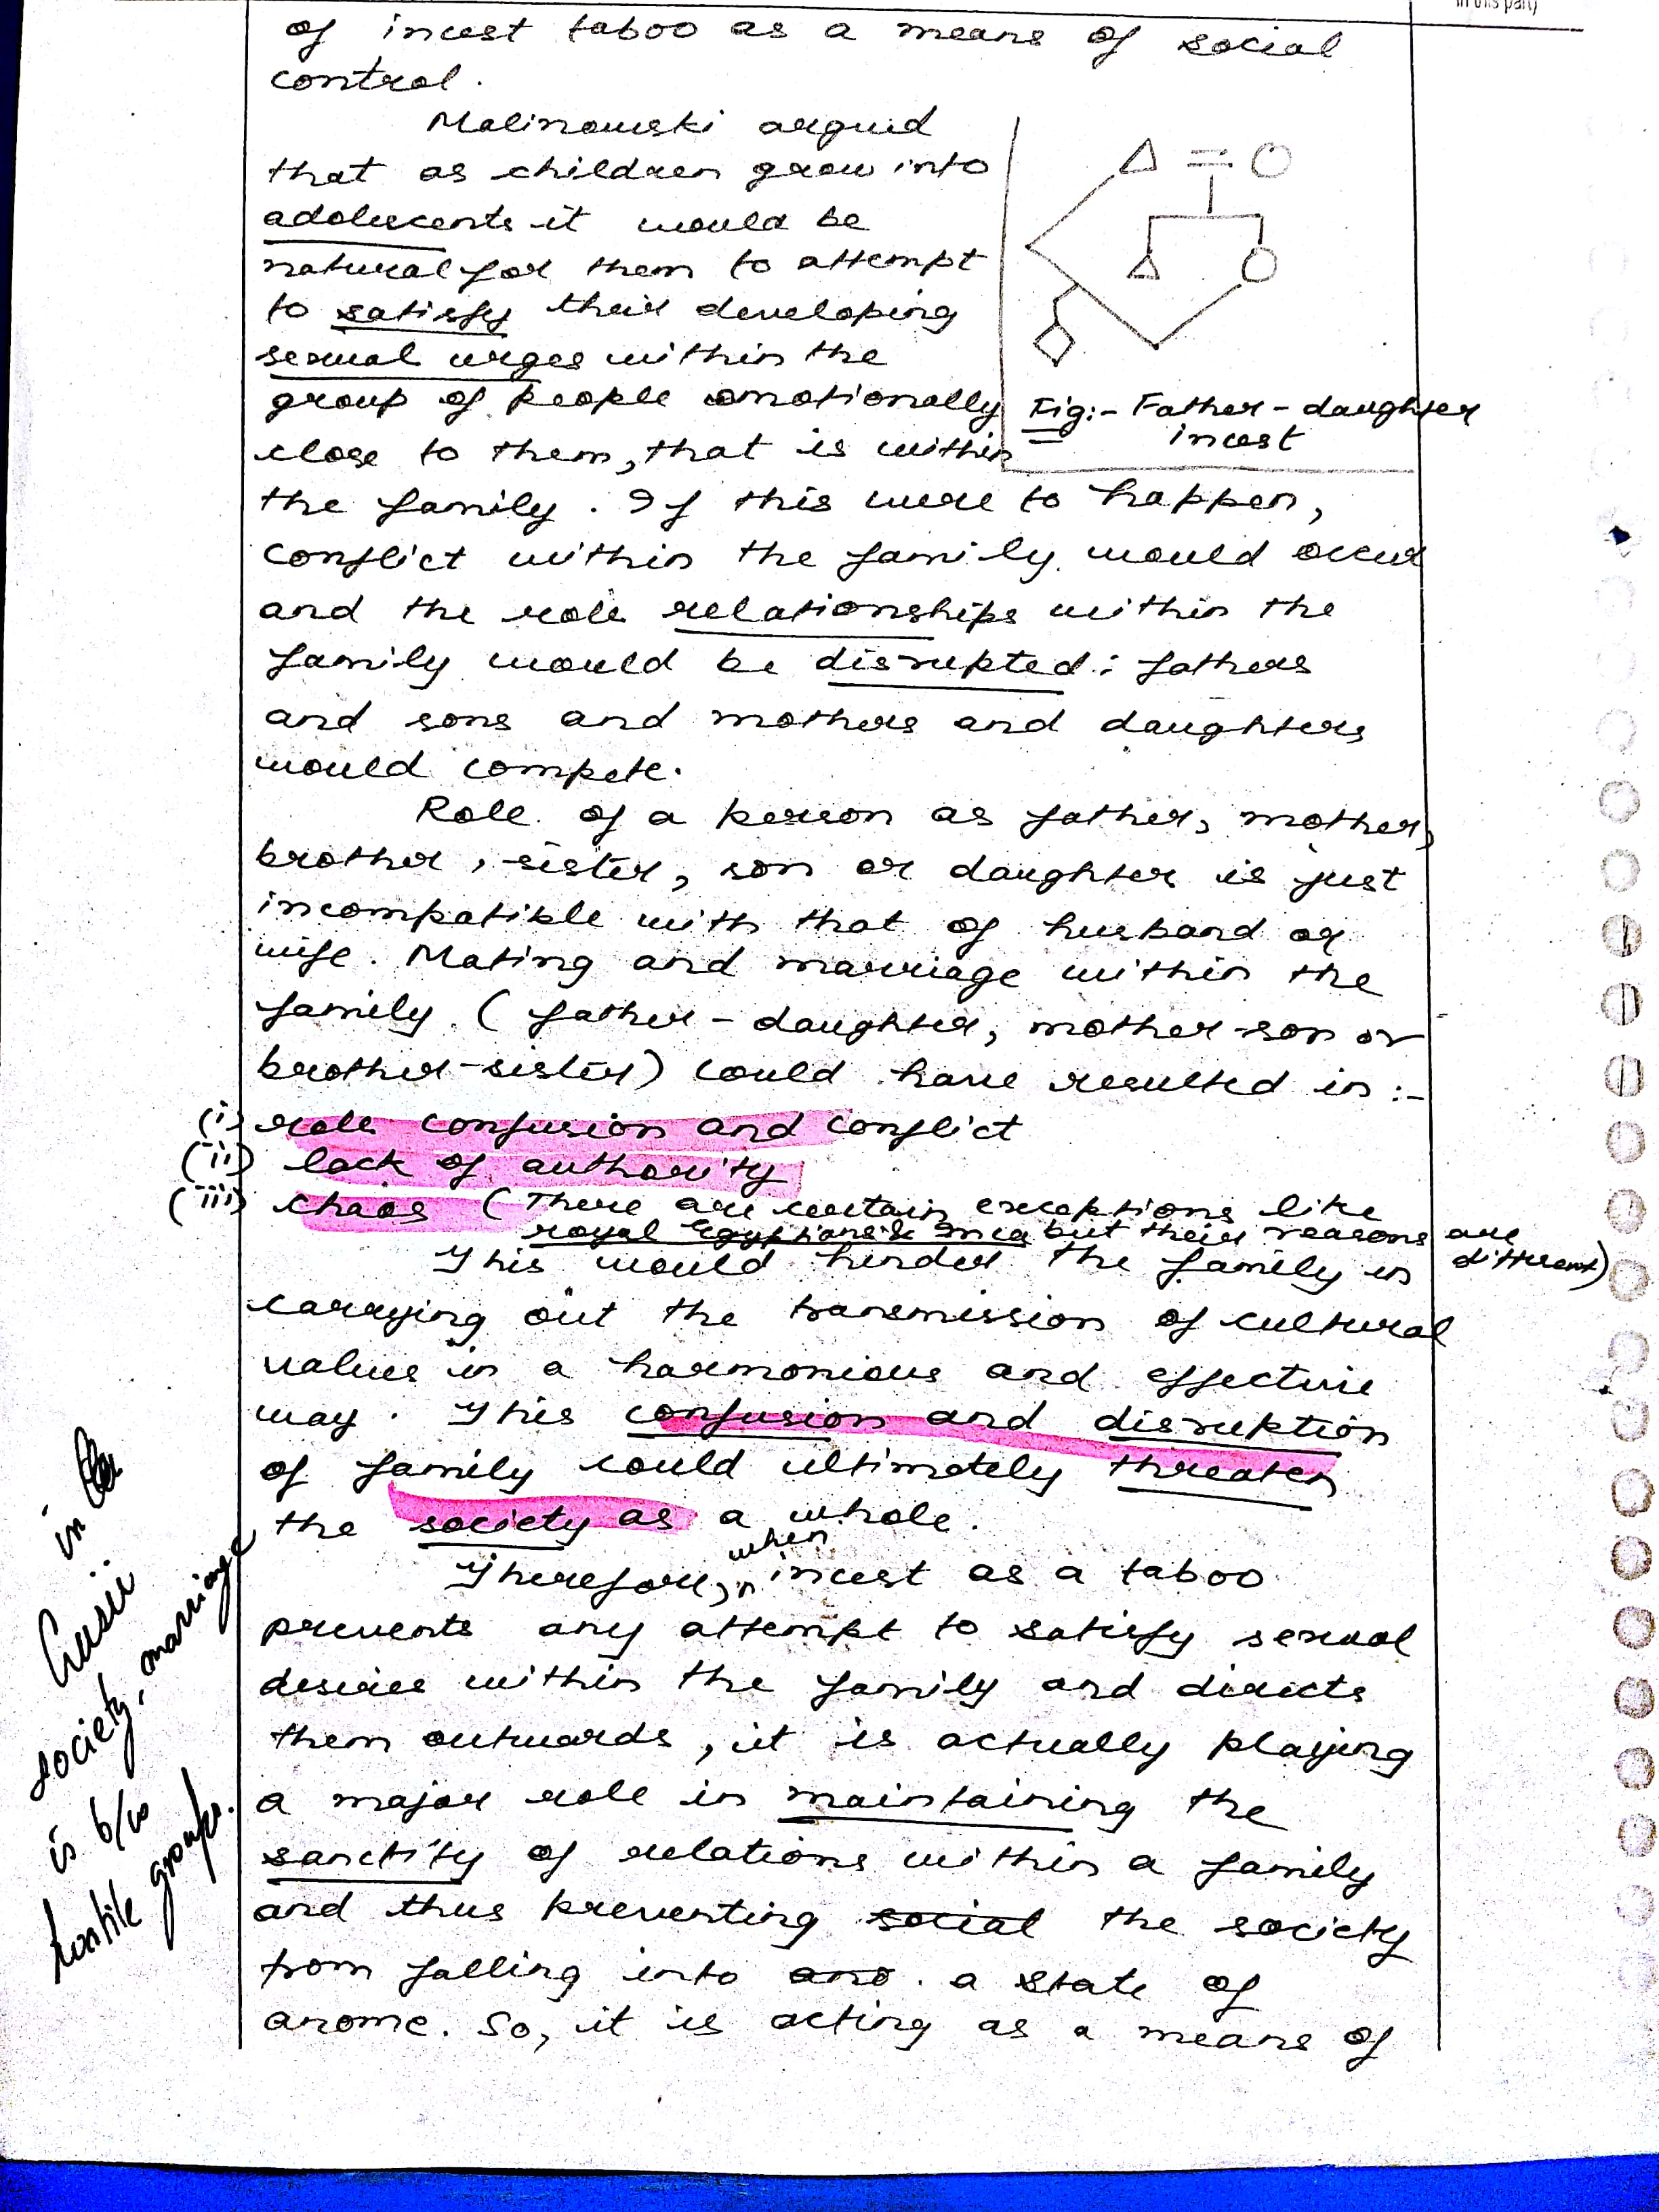 in this part)
of incest taboo as a means of social
control.
Malinowski argued
that as children grow into
adolescents it would be
natural for them to attempt
to satisfy their developing
sexual urges within the
group of people emotionally
close to them, that is within
Fig:- Father-daughter
incest
the family. If this were to happen,
conflict within the family would occur
and the role relationships within the
family would be disrupted: fathers
and sons and mothers and daughters
would compete.
Role of a person as father, mother,
brother, sister, son or daughter is just
incompatible with that of husband or
wife. Mating and marriage within the
family (father-daughter, mother-son or
brother-sister) could have resulted in:-
(i) role confusion and conflict
(ii) lack of authority
(iii) chaos (There are certain exceptions like
royal Egyptians & Inca but their reasons are
different)
This would hinder the family in
carrying out the transmission of cultural
values in a harmonious and effective
way. This confusion and disruption
of family could ultimately threaten
the society as a whole.
Therefore, when incest as a taboo
prevents any attempt to satisfy sexual
desires within the family and directs
them outwards, it is actually playing
a major role in maintaining the
sanctity of relations within a family
and thus preventing social the society
from falling into ano. a state of
anome. So, it is acting as a means of
in
society, marriage
is b/w
hostile groups.